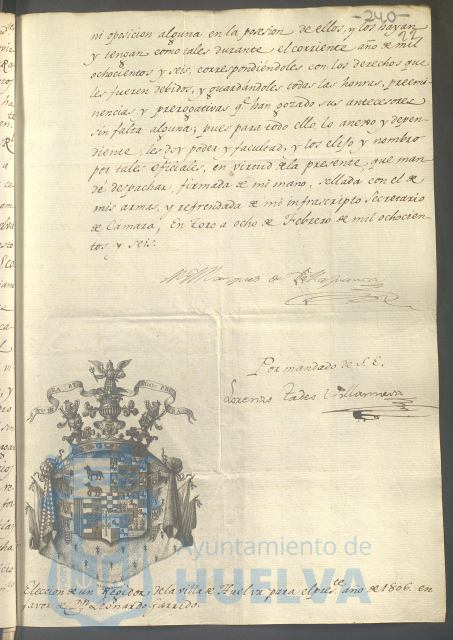 -240-
ni oposicion alguna en la posesion de ellos, y los hayan
y tengan como tales durante el corriente año de mil
ochocientos y seis, correspondiendoles con los derechos que
les fueren debidos, y guardandoles todas las honras, preemi
nencias, y prerogativas q.e han gozado sus antecesores
sin falta alguna; pues para todo ello, lo anexo y depen
diente, les doy poder y facultad, y los elijo y nombro
por tales oficiales, en virtud de la presente, que man
dé despachar, firmada de mi mano, sellada con el de
mis armas, y refrendada de mi infrascripto Secretario
de Cámara, En Toro a ocho de Febrero de mil ochocien
tos y seis.
El Marques de Villafranca
Por mandado de S. E.
Lorenzo Tadeo Villanueva
Ayuntamiento de
HUELVA
Eleccion de un Regidor de la villa de Huelva para el pres.te año de 1806. en
favor de D.n Leonardo Garrido.